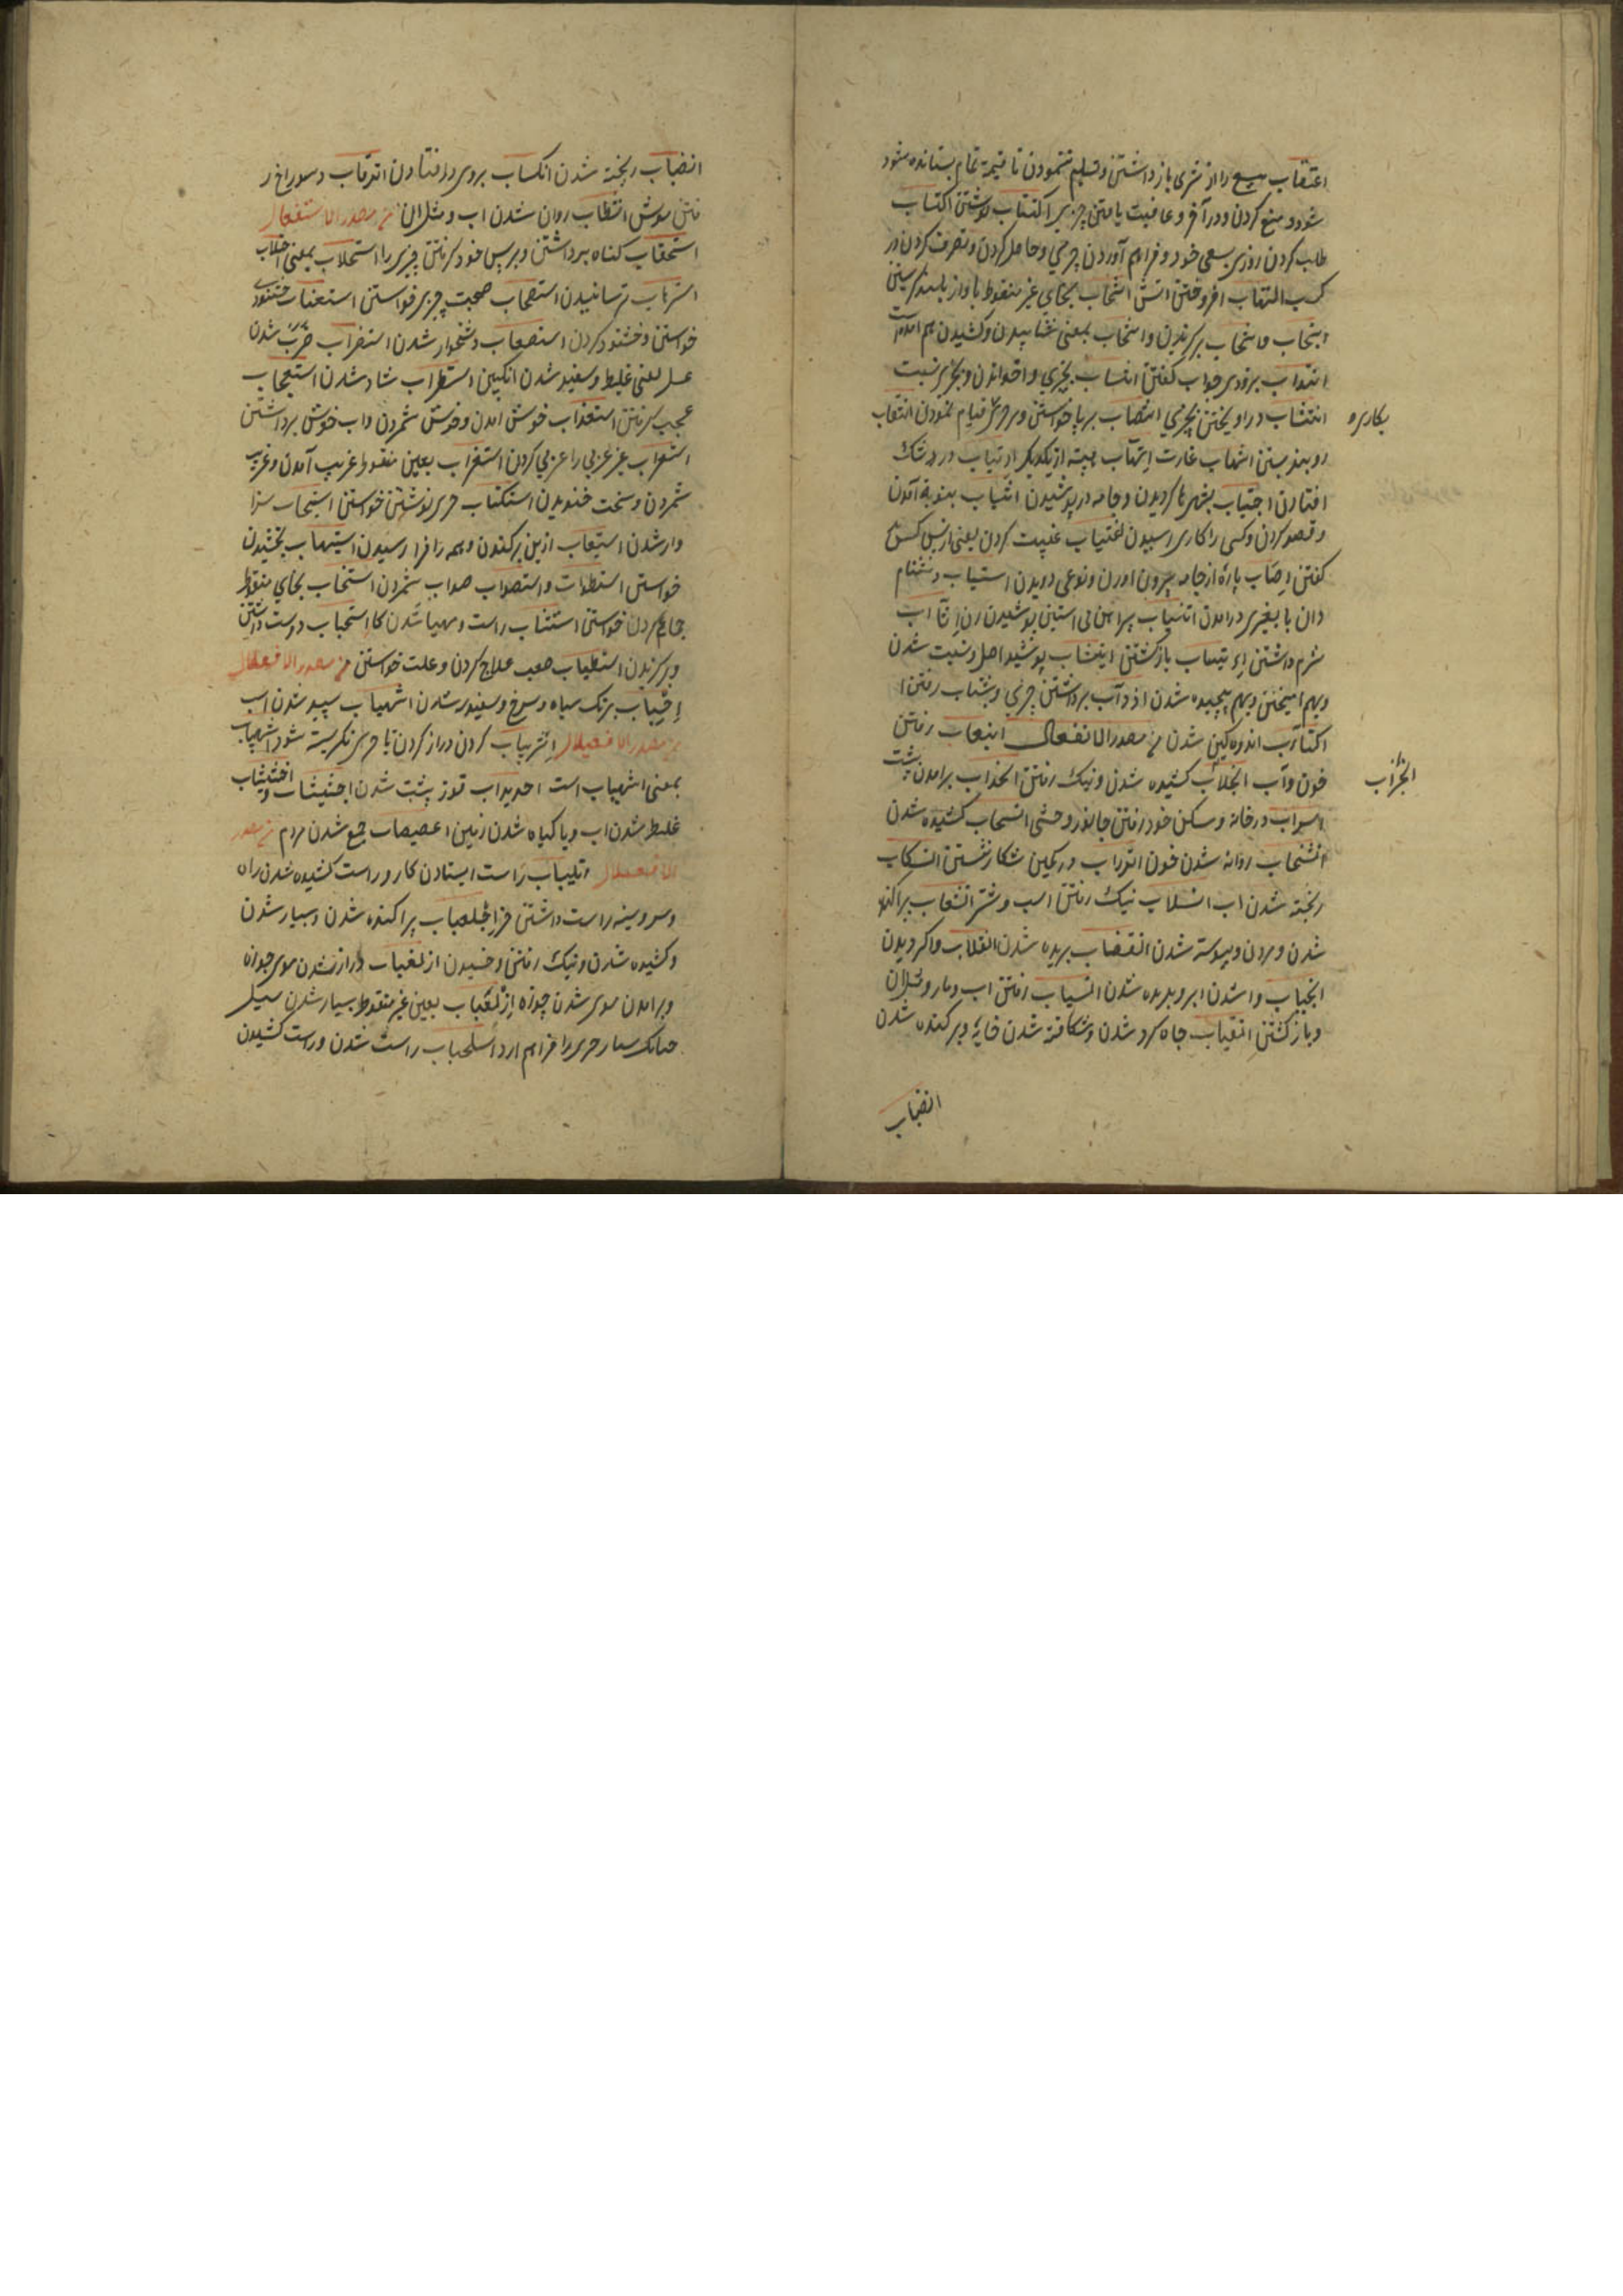 اعتقاب بیع را از مشری باز داشتن و تسلیم ننمودن تا قیمة تمام بستانده شود
شود و منع کردن و در آخر و عاقبت یافتن چیزیرا اکتتاب نوشتن اکتساب
طلب کردن روزی بسعی خود و فراهم آوردن چیزی و حاصل کردن و تصرف کردن در
کسب التهاب افروختن اتش انتحاب بحای غیر منقوط باواز بلند گریستن
انتخاب برگزیدن و انتخاب بمعنی و کشیدن هم امده
انتداب بزودی جواب گفتن انتساب بچیزی و اخواندن و بچیزی نسبت
انتشاب در آویختن بچیزی انتصاب برپا خواستن و بر چیزی قیام نمودن انتقاب
بکاری
روبند بستن انتهاب غارت اتهاب هبه از یکدیگر ارتیاب در شک
افتادن اجتیاب بشهرها گردیدن و جامه در پوشیدن انتیاب بنوبة آمدن
و قصد کردن و کسی را کاری رسیدن اغتیاب غیبت کردن یعنی از پس کسی
گفتن پارۀ از جامه بیرون اوردن و نوعی دویدن استیاب دشنام
دان در امدن پیراهن بی استین پوشیدن زن
شرم داشتن باز گشتن ایتشاب پوشید اصل و نسبت شدن
و بهم امیختن و بهم پیچیده شدن آب برداشتن چیزی و بشتاب رفتن
اکتئاب اندوهگین شدن مصدر الانفعال انبعاب رفتن
خون و آب انجلاب کشیده شدن و نیک رفتن انحداب برامدن پشت
انسراب در خانه و مسکن خود رفتن جانور وحشی انسحاب کشیده شدن
انجزاب
انشخاب روانه شدن خون انزراب در کمین شکار نشستن انسکاب
ریخته شدن اب انسلاب نیک رفتن اسب و شتر انشعاب پراکنده
شدن و مردن و پیوسته شدن انقضاب بریده شدن انقلاب واگردیدن
انجیاب وا شدن ابر و بریده شدن انسیاب رفتن اب و مار و مثلان
و باز گشتن انقیاب چاه کرد شدن و شکافته شدن خایه و بر کنده شدن
انصباب
انصباب ریخته شدن انکباب بروی در افتادن انزقاب در سوراخ ر
فتن موش روان شدن اب و مثل ان مصدر الاستفعال
استحقاب گناه برداشتن و بر پس خود گرفتن چیزی را استحلاب بمعنی احتلاب
استرهاب ترسانیدن استصحاب صحبت چیزی خواستن استعتاب خشنودی
خواستن و خشنود کردن استصعاب دشخوار شدن استضراب ضرب شدن
عسل یعنی غلیظ و سفید شدن انگبین استطراب شاد شدن استعجاب
عجب گرفتن استعذاب خوش امدن و خوش شمردن و اب خوش برداشتن
استعراب غیر عربی را عربی کردن استغراب بعین منقوط غریب آمدن و غریب
شمردن و سخت خندیدن استکتاب چیزی نوشتن خواستن استیجاب سزا
وار شدن استیعاب از بن بر کندن و همه را فرا رسیدن استیهاب بخشیدن
خواستن و استصواب صواب شمردن استنخاب بخای منقوط
جماع کردن خواستن استتباب راست و مهیا شدن کار استحباب دوست داشتن
و برگزیدن استطباب صعب علاج کردن و علت خواستن مصدر الافعلال
برنگ سیاه و سرخ و سفید شدن اشهباب سپید شدن اسب
مصدر الافعیلال اشریباب گردن دراز کردن تا چیزی نگریسته شود اشهیباب
بمعنی اشهباب است احدیداب قوز پشت شدن
غلیظ شدن اب و با گیاه شدن زمین اعصیصاب جمع شدن مردم مصدر
الافعلال اتلیباب راست ایستادن کار و راست کشیده شدن راه
و سر و سینه راست داشتن خر اجلعباب پراکنده شدن و بسیار شدن
و کشیده شدن و نیک رفتن و خسپیدن ازلغباب دراز شدن موی جوزه
و برامدن موی شدن جوزه ازلعباب بعین غیر منقوط بسیار شدن سیل
چنانکه بسیار چیزی را فراهم ارد اسلحباب راست شدن و راست کشیدن